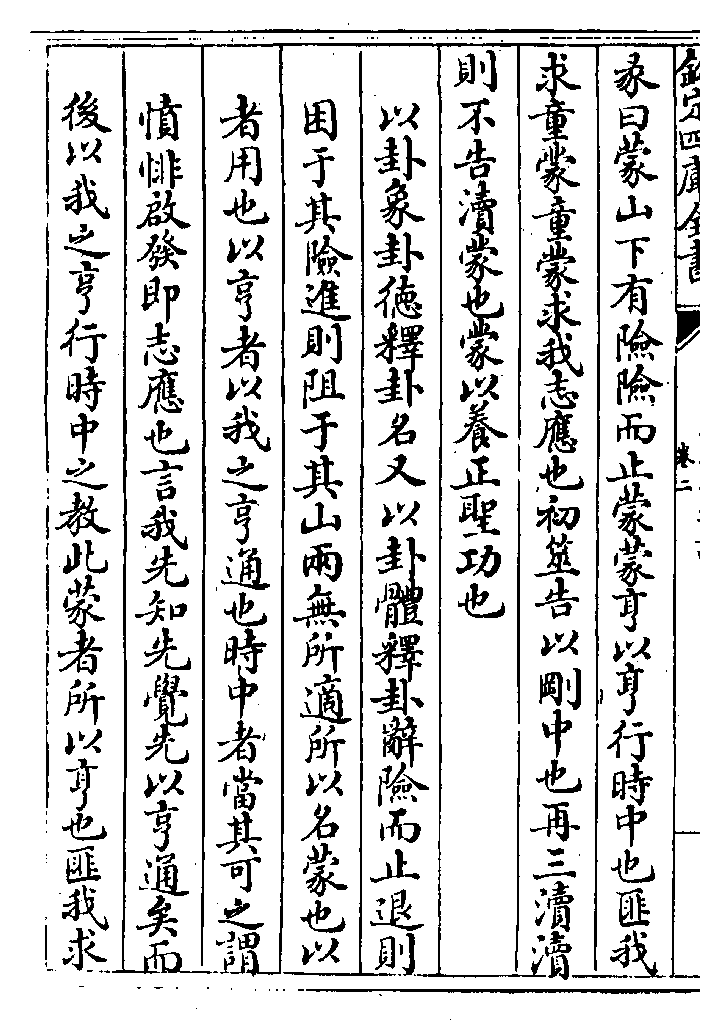 欽定四庫全書
卷二
彖曰蒙山下有險險而止蒙蒙亨以亨行時中也匪我
求童蒙童蒙求我志應也初筮告以剛中也再三瀆瀆
則不告瀆蒙也蒙以養正聖功也
以卦象卦德釋卦名又以卦體釋卦辭險而止退則
困于其險進則阻于其山兩無所適所以名蒙也以
者用也以亨者以我之亨通也時中者當其可之謂
憤悱啟發即志應也言我先知先覺先以亨通矣而
後以我之亨行時中之教此蒙者所以亨也匪我求